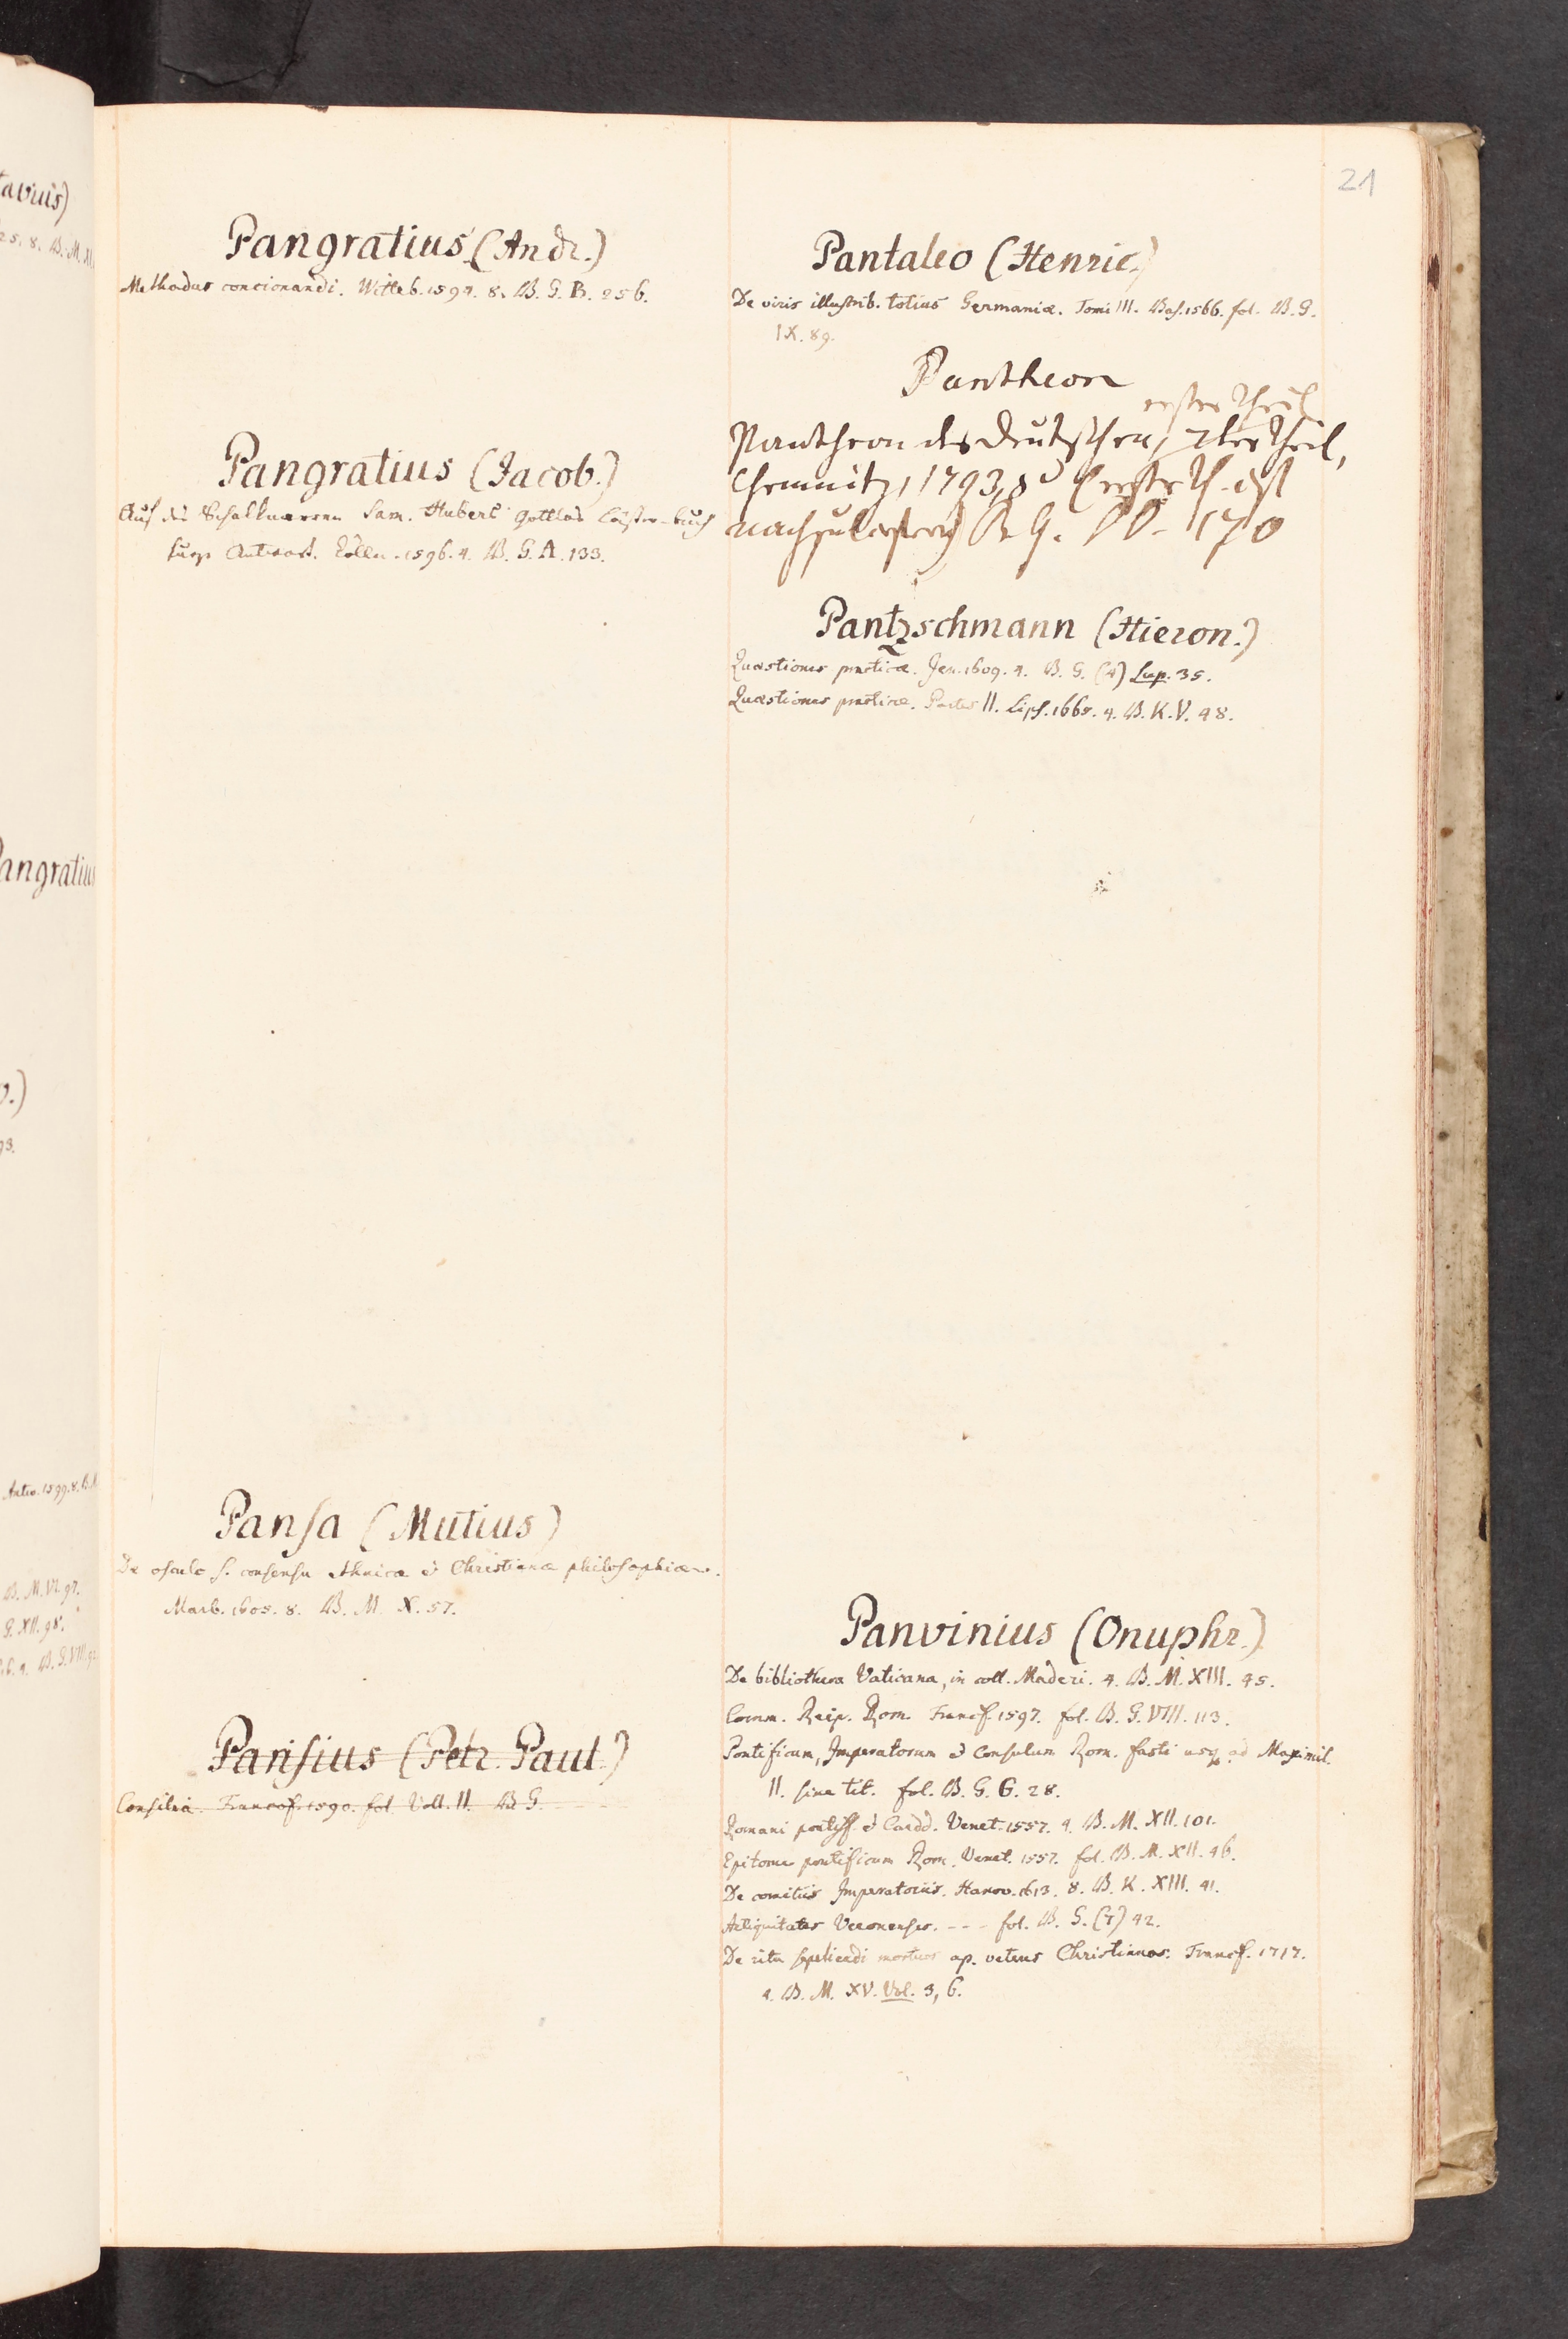 21
Pangratius (Andr.)
Methodus concionandi. Witteb. 1594. 8. B. G. B. 256.
Pangratius (Jacob.)
Auf des Schalknarren Sam. Huberi Gottlos Läster-buch
kurze Antwort. Cölln. 1596. 4. B. G. A. 133.
Pansa (Mutius)
De osculo s. consensu ethnicæ & Christianæ philosophiæ.
Marb. 1605. 8. B. M. X. 57.
Parisius (Petr. Paul.)
Consilia. Francof. 1590. fol. Voll. II. B. G.
Pantaleo (Henric.)
De viris illustrib. totius Germaniæ. Tomi III. Bas. 1566. fol. B. G.
IX. 89.
Pantheon
erster Theil
Pantheon der Deutschen, 2ter Theil,
Chemnitz, 1794, 8º (erster Th. ist
B. G. 170
Pantzschmann (Hieron.)
Quæstiones practicæ. Jen. 1609. 4. B. G. (4) Sup. 35.
Quæstiones practicæ. Partes II. Lips. 1665. 4. B. K. V. 48.
Panvinius (Onuphr.)
De bibliotheca Vaticana, in coll. Maderi. 4. B. M. XIII. 45.
Comm. Reip. Rom. Francf. 1597. fol. B. G. VIII. 113.
Pontificum, Imperatorum & Consulum Rom. fasti usq. ad Maximil.
II. sine tit. fol. B. G. G. 28.
Romani pontiff. & Cardd. Venet. 1557. 4. B. M. XII. 101.
Epitome pontificum Rom. Venet. 1557. fol. B. M. XII. 46.
De comitiis Imperatoriis. Hanov. 1613. 8. B. K. XIII. 41.
Antiquitates Veronenses. --- fol. B. G. (7) 42.
De ritu sepeliendi mortuos ap. veteres Christianos. Francf. 1717.
4. B. M. XV. Vol. 3, 6.